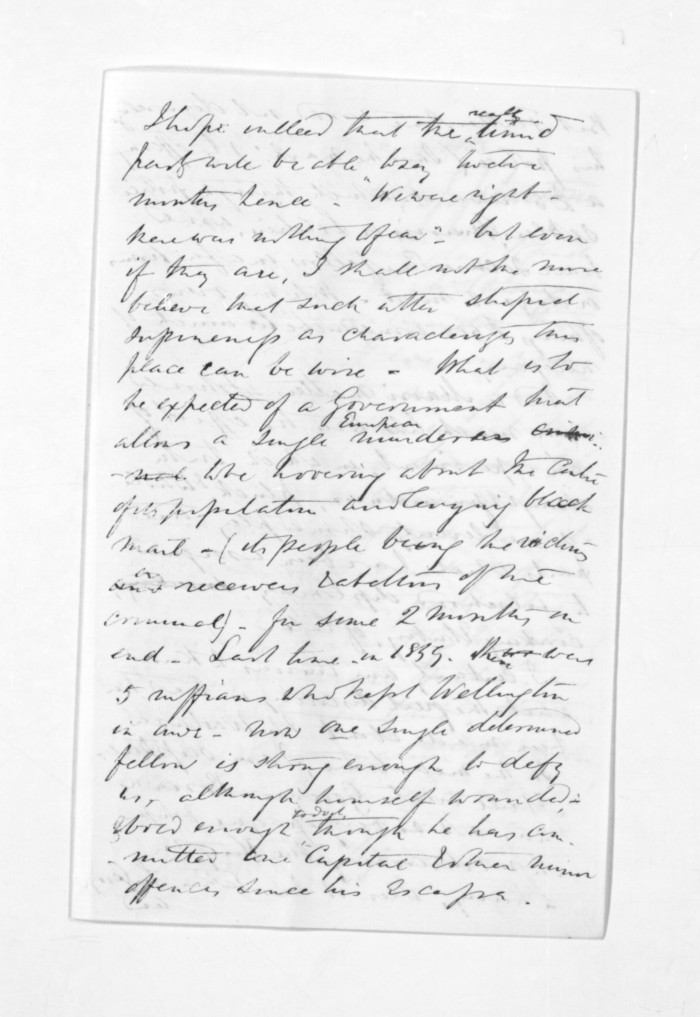 I hope indeed that the really timid
party will be able to say twelve
months hence - "We were right -
there was nothing to fear" - but even
if they are, I shall not the more
believe that such utter stupid
supineness as characterizes this
place can be wise - What is to
be expected of a Government that
allows a single European murderer
to be hovering about the Centre
of its population and levying black
mail - (its people being the victims
or receivers & abettors of the
criminal) - for some 2 months on
end - Last time - in 1839. there was
5 ruffians who kept Wellington
in awe - now one single determined
fellow is strong enough to defy
us, although himself wounded,
& bold enough to do it though he has com-
-mitted one Capital & other minor
offences since his escape.